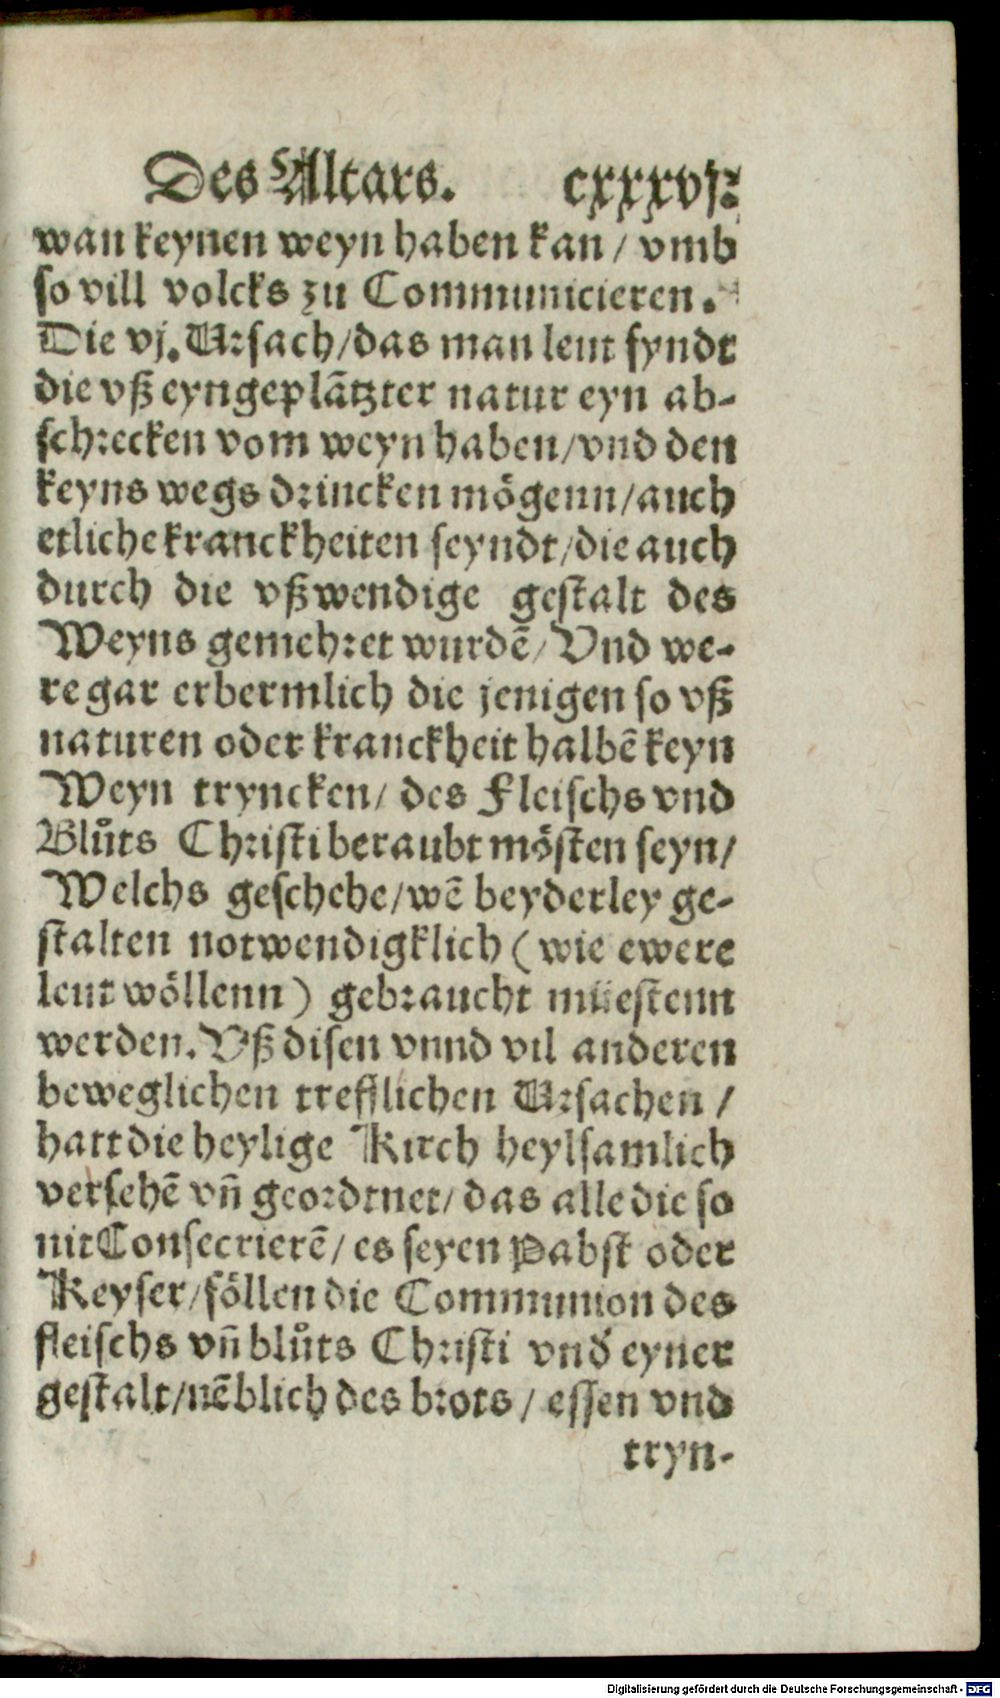 Des Altars. cxxxvj.
wan keynen weyn haben kan / vmb
so vill volcks zu Communicieren.
Die vj. Ursach/das man leut fyndt
die vß eyngeplãtzter natur eyn ab-
schrecken vom weyn haben/vnd den
keyns wegs drincken mögenn/auch
etliche kranckheiten seyndt/die auch
durch die vßwendige gestalt des
Weyns gemehret wurdẽ/Vnd we-
re gar erbermlich die jenigen so vß
naturen oder kranckheit halbẽ keyn
Weyn tryncken/ des Fleischs vnd
Blůts Christi beraubt mösten seyn/
Welchs geschehe/wẽ beyderley ge-
stalten notwendigklich (wie ewere
leut wöllenn) gebraucht müestenn
werden. Vß disen vnnd vil anderen
beweglichen trefflichen Ursachen /
hatt die heylige Kirch heylsamlich
versehẽ vñ geordtnet/ das alle die so
nit Consecrierẽ/ es seyen Pabst oder
Keyser/söllen die Communion des
fleischs vñ blůts Christi vnd̕ eyner
gestalt/nẽblich des brots / essen vnd
tryn-
Digitalisierung gefördert durch die Deutsche Forschungsgemeinschaft - DFG